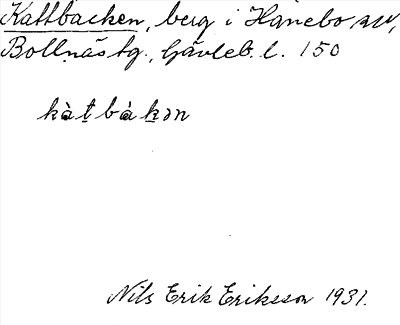 Kattbacken, berg i Hanebo sn,
Bollnäs tg., Gävleb. l. 150
kàt̠bàk̠ən
Nils Erik Eriksson 1931.